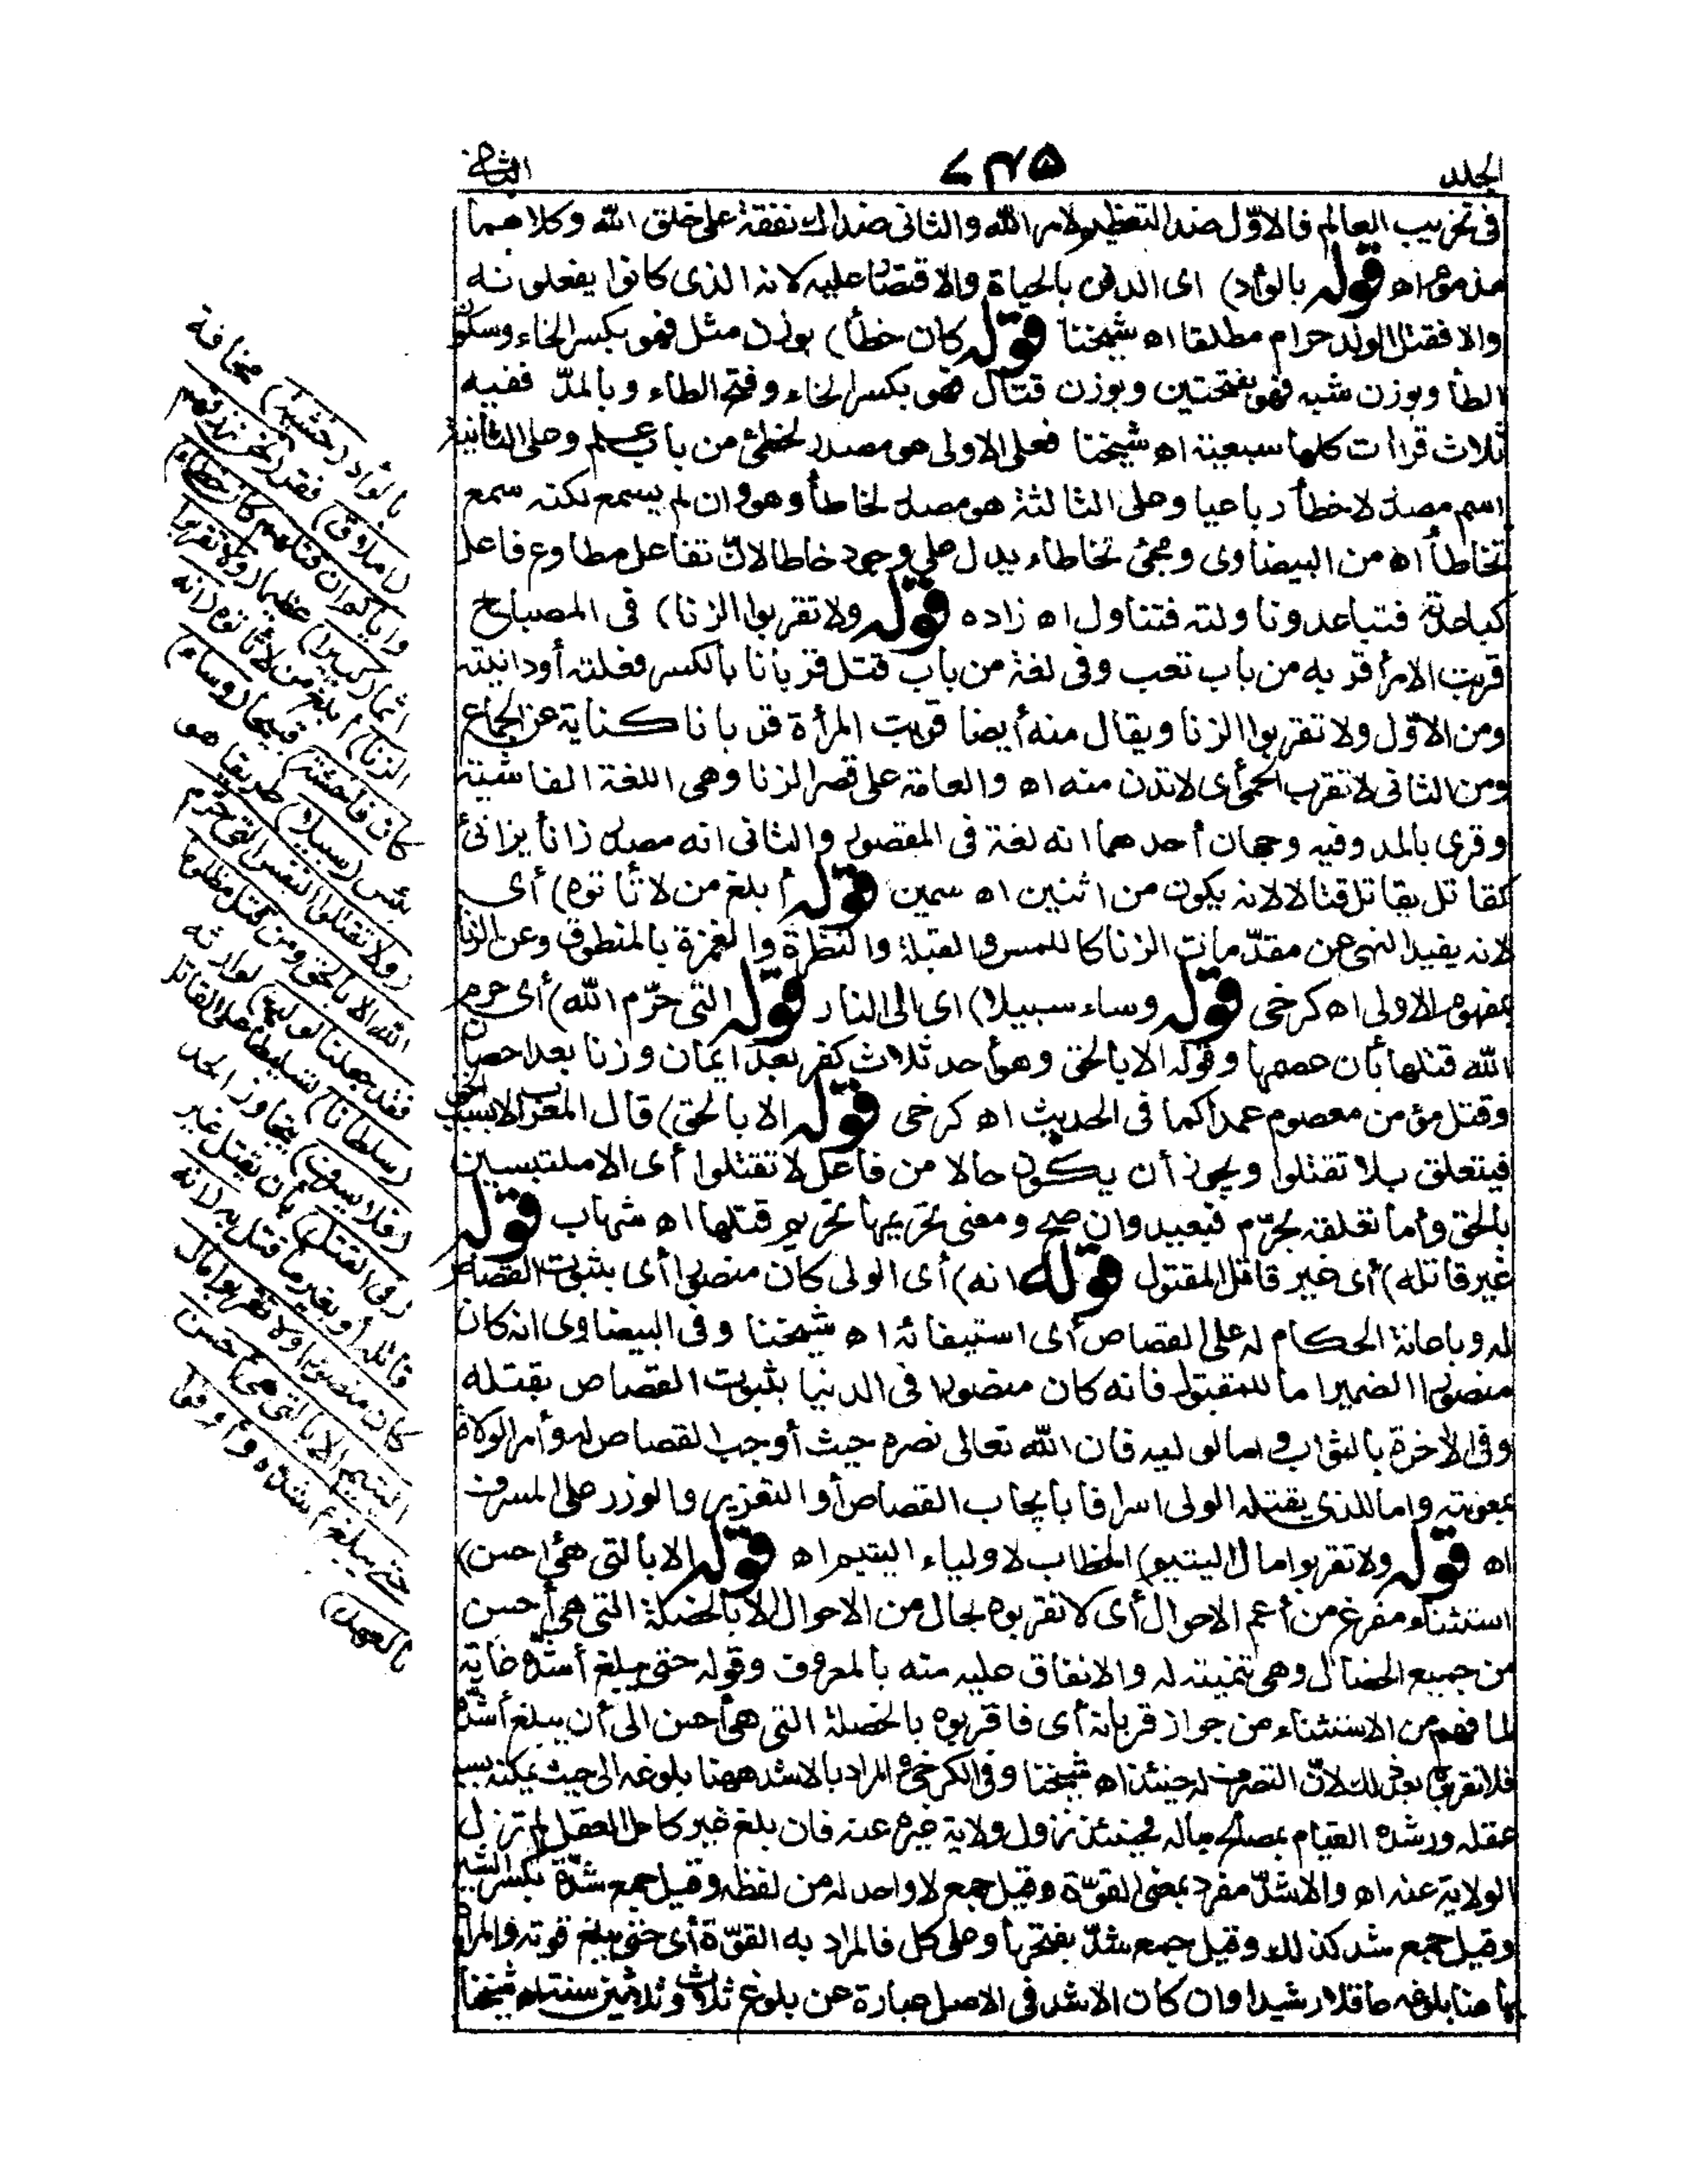 الجلد
٧٣٥
الثانى
فى تخريب العالم فالاوّل ضد التعظيم لامر الله والثانى ضد الشفقة على خلق الله وكلاهما
مذموم اه قوله بالوأد) اى الدفن بالحياة والاقتصار عليه لانه الذى كانوا يفعلونه
والا فقتل الولد حرام مطلقا اه شيخنا قوله كان خطأ) بوزن مثل فهو بكسر الخاء وسكون
الطأ وبوزن شبه فهو بفتحتين وبوزن قتال فهو بكسر الخاء وفتح الطاء وبالمدّ ففيه
ثلاث قرا ات كلها سبعية اه شيخنا فعلى الاولى هو مصدر لخطئ من باب علم وعلى الثانية
اسم مصدر لاخطأ رباعيا وعلى الثالثة هو مصدر لخاطأ وهو وان لم يسمع لكنه سمع
تخاطأ اه من البيضاوى ومجئ تخاطاء يدل على وجود خاطا لانّ تفاعل مطاوع فاعل
كباعدته فتباعد وناولته فتناول اه زاده قوله ولا تقربوا الزنا) فى المصباح
قربت الامر أقربه من باب تعب وفى لغة من باب قتل قربانا بالكسر فعلته أو دانيته
ومن الاوّل ولا تقربوا الزنا ويقال منه أيضا قربت المرأة قربانا كناية عن الجماع
ومن الثانى لا تقرب الحمى أى لا تدن منه اه والعامة على قصر الزنا وهى اللغة الفاشية
وقرى بالمد وفيه وجهان أحدهما انه لغة فى المقصور والثانى انه مصدر زانأ يزانئ
كقاتل يقاتل قتالا لانه يكون من اثنين اه سمين قوله أبلغ من لا تأتوه) أى
لانه يفيد النهى عن مقدّمات الزنا كاللمس والقبلة والنظرة والغمزة بالمنطوق وعن الزنا
بمفهوم الاولى اه كرخى قوله وساء سبيلا) اى الى النار قوله التى حرّم الله) أى حرم
الله قتلها بأن عصمها وقوله الا بالحق وهو أحد ثلاث كفر بعد ايمان وزنا بعد احصان
وقتل مؤمن معصوم عمدا كما فى الحديث اه كرخى قوله الا بالحق) قال المعرب الا بسبب الحق
فيتعلق بلا تقتلوا ويجوز أن يكون حالا من فاعل لا تقتلوا أى الا ملتبسين
بالحق وأما تعلقه بحرّم فبعيد وان صح ومعنى تحريمها تحريم قتلها اه شهاب قوله
غير قاتله) أى غير قاتل المقتول قوله انه) أى الولى كان منصورا أى بثبوت القصاص
له وباعانة الحكام له على القصاص أى استيفائه اه شيخنا وفى البيضاوى انه كان
منصورا الضمير اما للمقتول فانه كان منصورا فى الدنيا بثبوت القصاص بقتله
وفى الآخرة بالثواب واما لوليه فان الله تعالى نصره حيث أوجب القصاص له وأمر الولاة
بمعونته واما للذى يقتله الولى اسرافا بايجاب القصاص أو التعزير والوزر على المسرف
اه قوله ولا تقربوا مال اليتيم) الخطاب لاولياء اليتيم اه قوله الا بالتى هى احسن)
استثناء مفرغ من أعم الاحوال أى لا تقربوه بحال من الاحوال الا بالخصلة التى هى أحسن
من جميع الخصال وهى تنميته له والانفاق عليه منه بالمعروف وقوله حتى يبلغ أشدّه غاية
لما فهم من الاستثناء من جواز قربانه أى فاقربوه بالخصلة التى هى أحسن الى أن يبلغ أشدّه
فلا تقربوه بعد ذلك لانّ التصرف له حينئذ اه شيخنا وفى الكرخى والمراد بالاشد ههنا بلوغه الى حيث يمكنه بسبب
عقله ورشده القيام بمصالح ماله فحينئذ تزول ولاية غيره عنه فان بلغ غير كامل العقل لم تزل
الولاية عنه اه والاشدّ مفرد بمعنى القوّة وقيل جمع لا واحد له من لفظه وقيل جمع شدّة بكسر الشين
وقيل جمع شد كذلك وقيل جمع شدّ بفتحها وعلى كل فالمراد به القوّة أى حتى يبلغ قوته والمراد
بها هنا بلوغه عاقلا رشيدا وان كان الاشد فى الاصل عبارة عن بلوغ ثلاث وثلاثين سنة اه شيخنا
بالوأد (خشية) مخافة
(املاق) فقر (نحن نرزقهم
واياكم ان قتلهم كان خطأ)
اثما (كبيرا) عظيما (ولا تقربوا
الزنا) أبلغ من لا تأتوه (انه
كان فاحشة) قبيحا (وساء)
بئس (سبيلا) طريقا هو
(ولا تقتلوا النفس التى حرّم
الله الا بالحق ومن قتل مظلوما
فقد جعلنا لوليه) لوارثه
(سلطانا) تسليطا على القاتل
(فلا يسرف) يتجاوز الحد
(فى القتل) بأن يقتل غير
قاتله أو بغير ما قتل به (انه
كان منصورا ولا تقربوا مال
اليتيم الا بالتى هى أحسن
حتى يبلغ أشده وأوفوا
بالعهد)